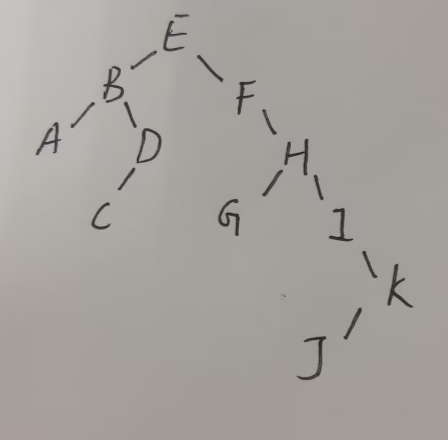 E
B
F
A
D
H
C
G
I
K
J